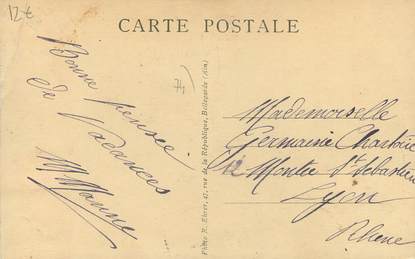 12€
CARTE POSTALE
Bonne pensée
de Vacances
74
Photo F. Ehrer, 47, rue de la République, Bellegarde (Ain)
Mademoiselle
Germaine
12 Montée St Sébastien
Lyon
Rhône